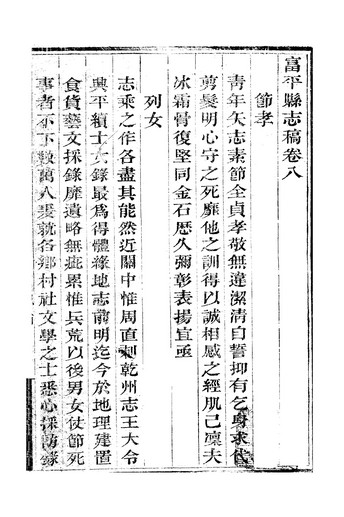 富平縣志稿卷八
節孝
青年矢志素節全貞孝敬無違潔清自誓抑有乞身求代
剪髮明心守之死靡他之訓得以誠相感之經肌已凜夫
冰霜骨復堅同金石歷久彌彰表揚宜亟
列女
志乘之作各盡其能然近關中惟周直刺乾州志王大令
興平續士女錄最為得體緣地志前明迄今於地理建置
食貨藝文採錄靡遺略無疵累惟兵荒以後男女仗節死
事者不下數萬人爰就各鄉村社文學之士悉心採訪錄